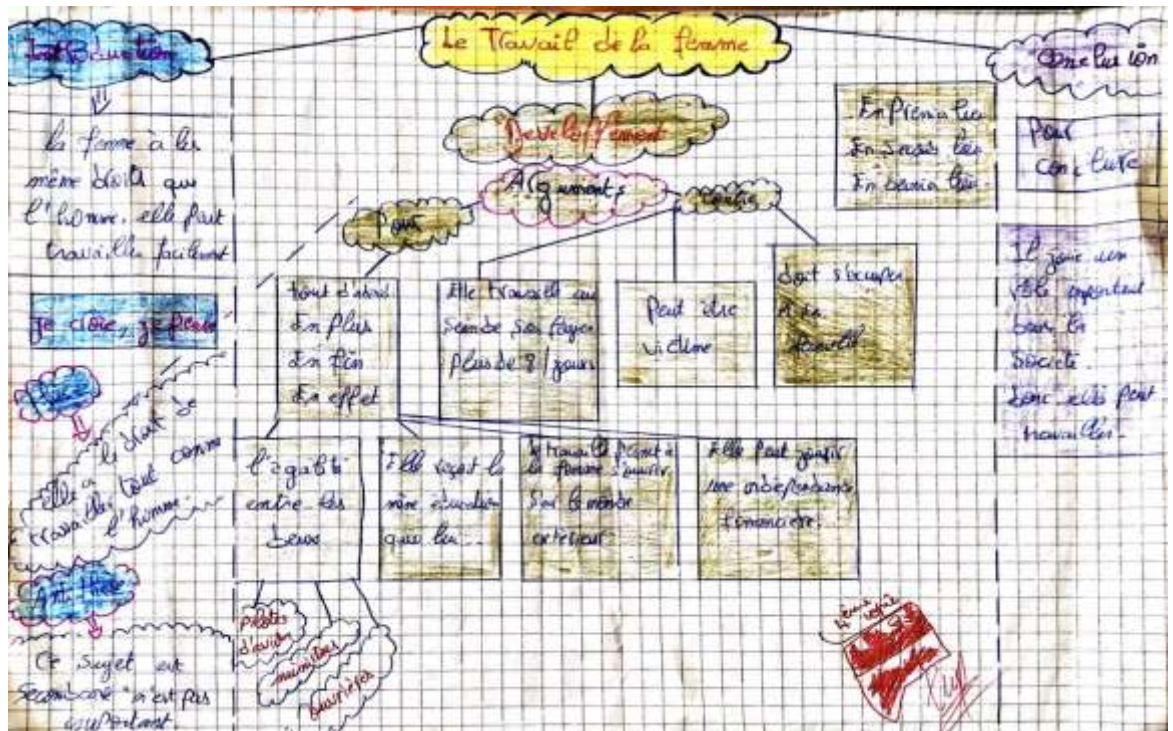 Le Travail de la femme
Introduction
la femme à les
même droits que
l'homme. elle peut
travailler facilement
je croie, je pense
Elle a le droit de
travailler tout comme
l'homme.
Ce sujet est
secondaire n'est pas
important.
Developpement
Arguments
Pour
contre
tout d'abord
En plus
En fin
En effet
Elle travaille au
sein de son foyer
plus de 8 / jours
Peut être
victime
doit s'occuper
famille
l'égalité
entre les
deux
Elle reçoit la
même éducation
que lui...
le travaille permet à
la femme s'ouvrir
sur le monde
extérieur
Elle peut
une indépendance
financière.
pilotes
d'avion
ministres
ouvrières
En premier lieu
En lieu
En dernier lieu
Conclusion
pour
conclure
Il joue un
rôle important
dans la
société.
donc elle peut
travailler.